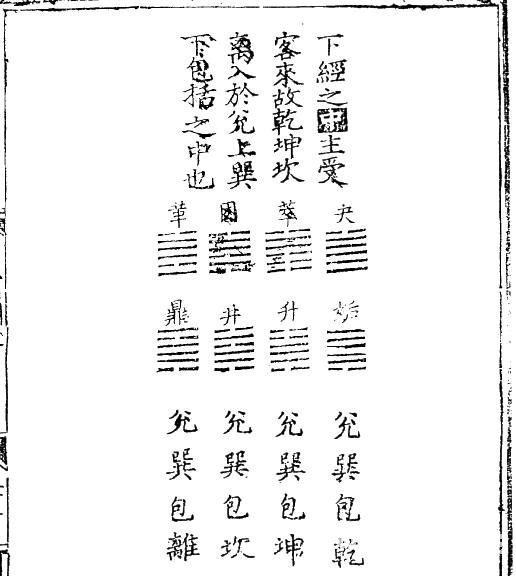 下經之中主受
客來故乾坤坎
离入於兊上巽
下包括之中也
夬 萃 困 革
姤 升 井 鼎
兊巽包乾
兊巽包坤
兊巽包坎
兊巽包離